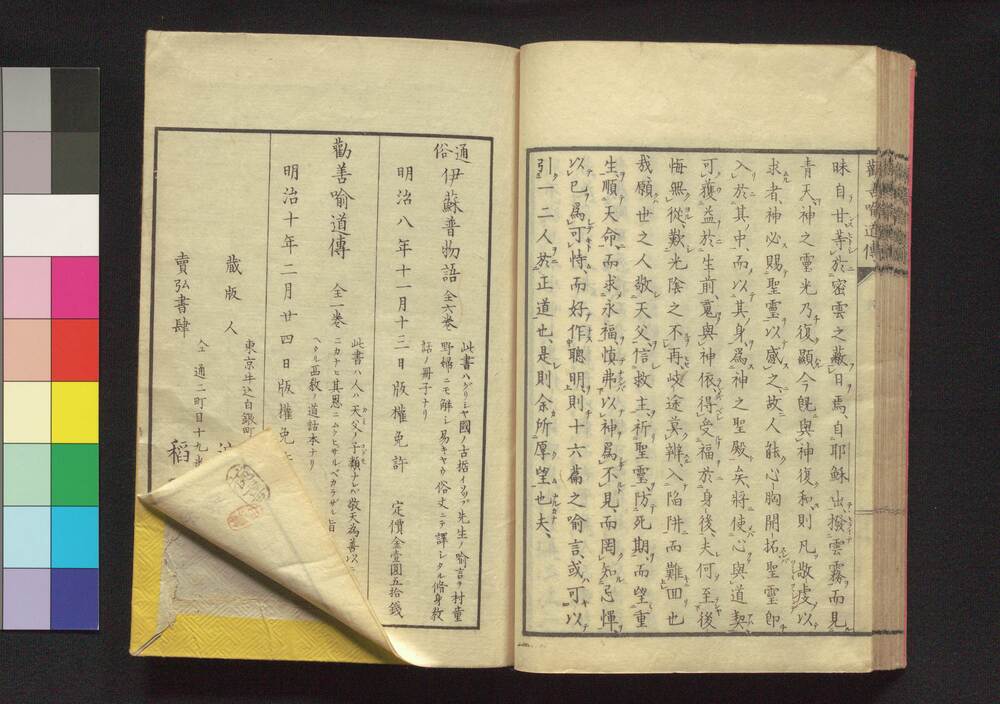 昧自甘等於密雲之蔽日焉、自耶穌出、撥雲霧而見
青天、神之靈光乃復顯今既與神復和、則凡敬虔以
求者、神必賜聖靈以感之、故人能心胸開拓、聖靈卽
入於其中、而以其身爲神之聖殿矣、將使心與道契、
可獲益於生前、䰟與神依、得受福於身後、夫何至後
悔無從、歎光陰之不再、歧途莫辨、入陷阱而難回也
我願世之人敬天父、信救主、祈聖靈、防死期、而望重
生、順天命、而求永福、愼弗以神爲不見、而罔知忌憚、
以已爲可恃、而好作聰明、則十六篇之喻言、或可以
引一二人於正道也、是則余所厚望也夫、
勸善喻道傳
通俗 伊蘇普物語 全六卷
此書ハグリシヤ國ノ古哲イソップ先生ノ喻言ヲ村童
野婦ニモ解シ易キヤウ俗文ニテ譯シタル脩身敎
話ノ冊子ナリ
明治八年十一月十三日版權免許 定價金壹圓五拾錢
勸善喻道傳 全一卷
此書ハ人ハ天父ノ子類ナレバ敬天為善以テ
ニカナヒ其恩ニムクヒサルベカラザル旨
ヘタル西敎ノ道話本ナリ
明治十年二月廿四日版權免許
藏版人
東京牛込白銀町
賣弘書肆
仝 通二町目十九番
稻